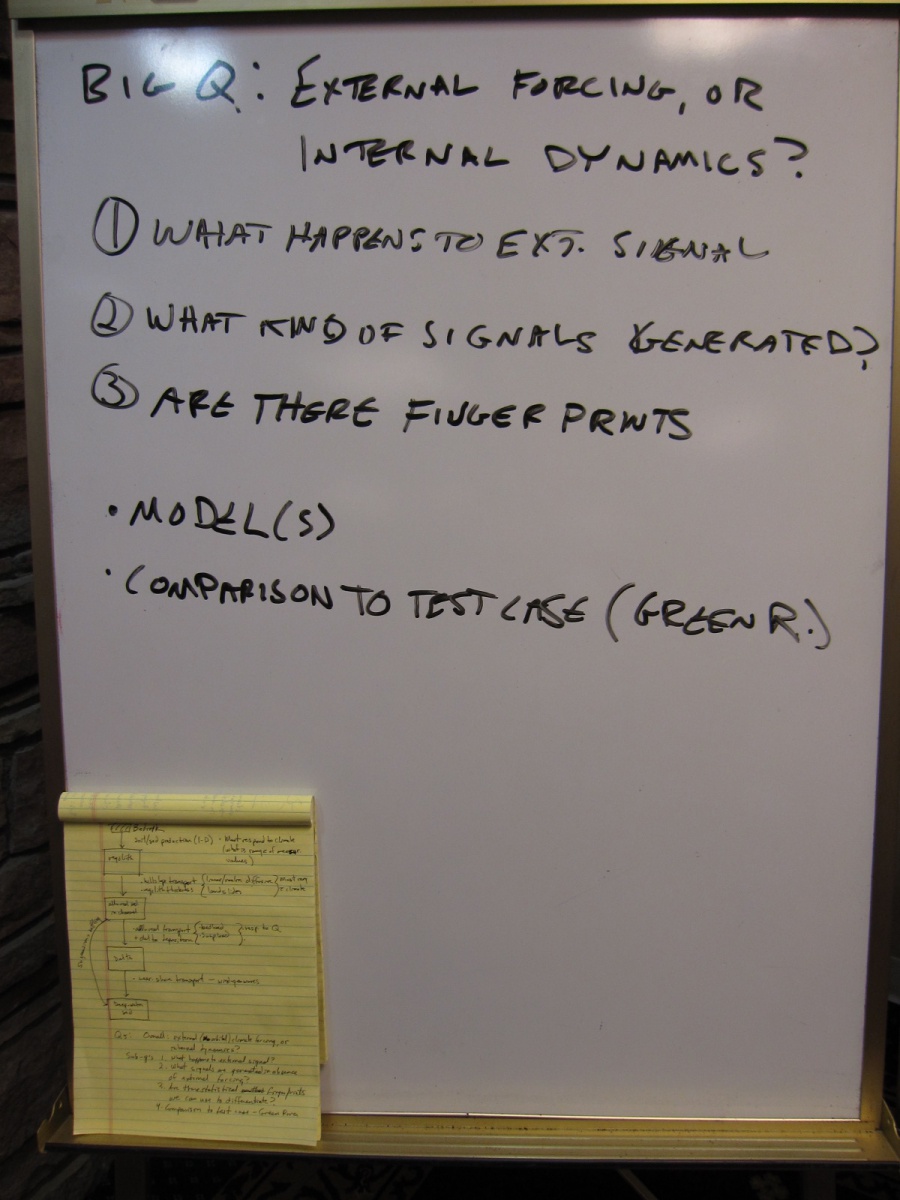 BIG Q: EXTERNAL FORCING, OR
INTERNAL DYNAMICS?
① WHAT HAPPENS TO EXT. SIGNAL
② WHAT KIND OF SIGNALS GENERATED?
③ ARE THERE FINGER PRINTS
• MODEL(S)
• COMPARISON TO TEST CASE (GREEN R.)
Bedrock
• Must respond to climate
(what is range of
values)
regolith
hillslope transport
landslides
climate
alluvial sed
in channel
transport
resp to Q
Delta
transport
Qs: Overall: external climate forcing, or
internal dynamics?
Sub-q's 1. What happens to external signal?
2. What signals are generated in absence
of external forcing?
3. Are there statistical fingerprints
we can use to differentiate?
4. Comparison to test case - Green River